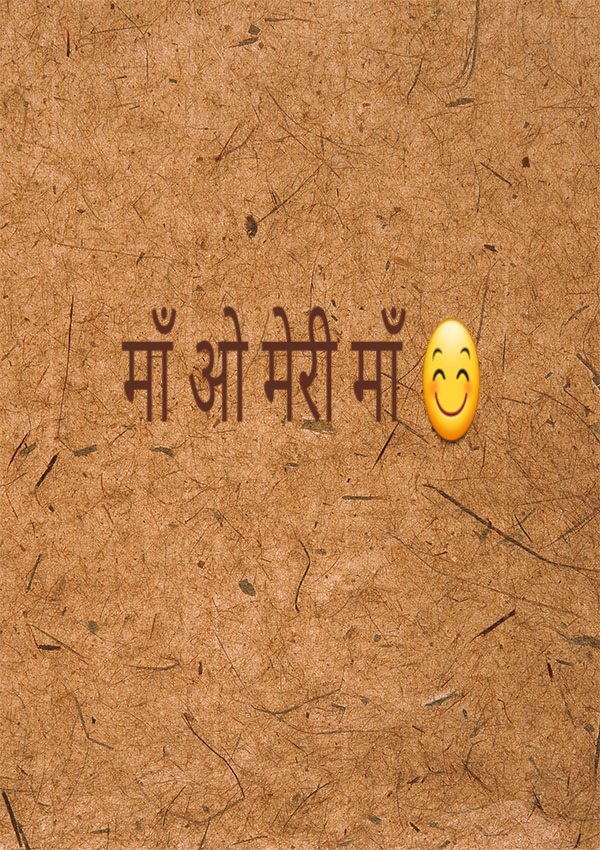 माँ ओ मेरी माँ 😊